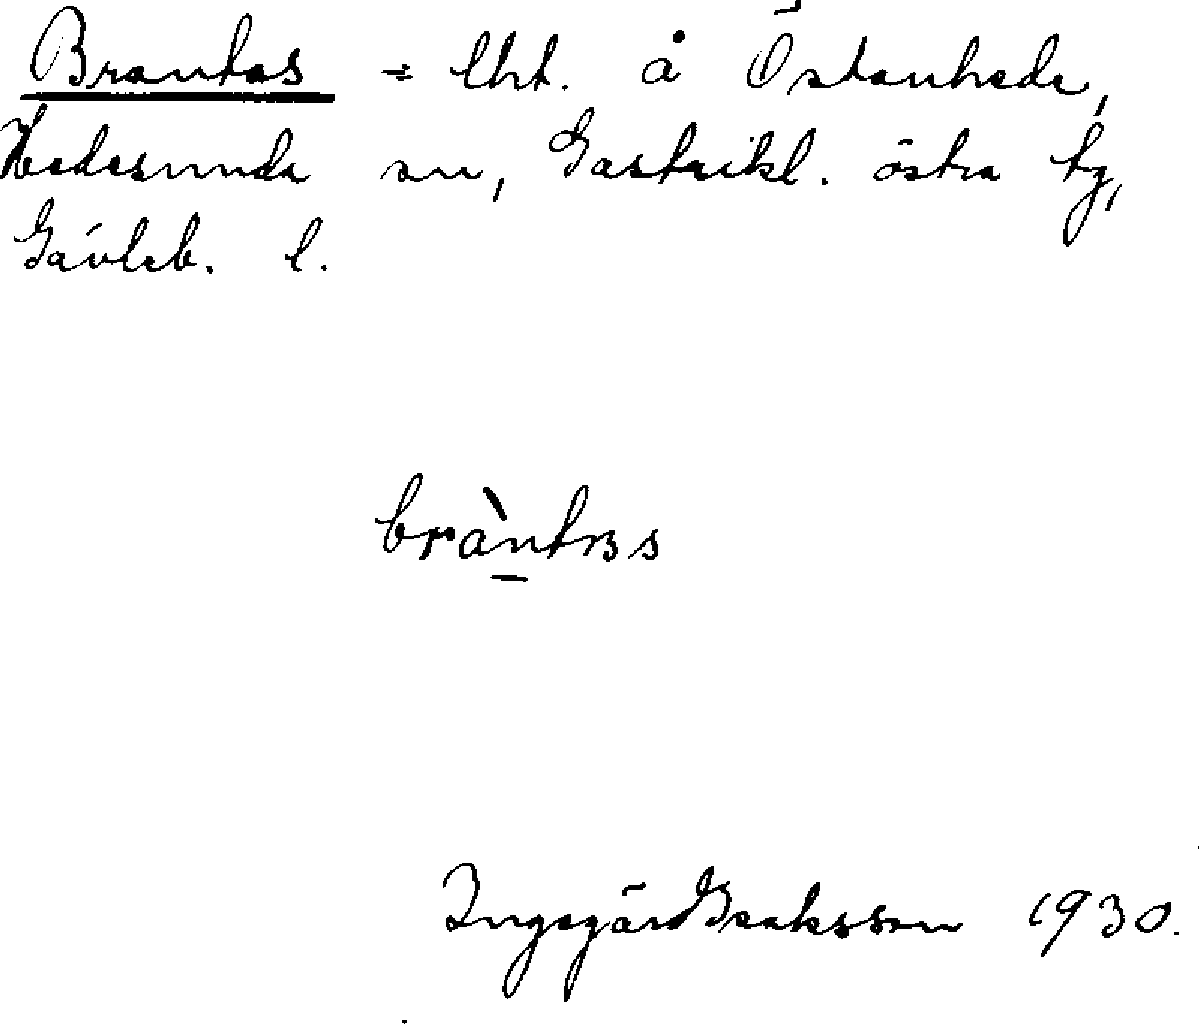 Brantas = lht. å Östanhede,
Hedesunda sn, Gästrikl. östra tg,
Gävleb. l.
bràntas
Ingegärd Isaksson 1930.